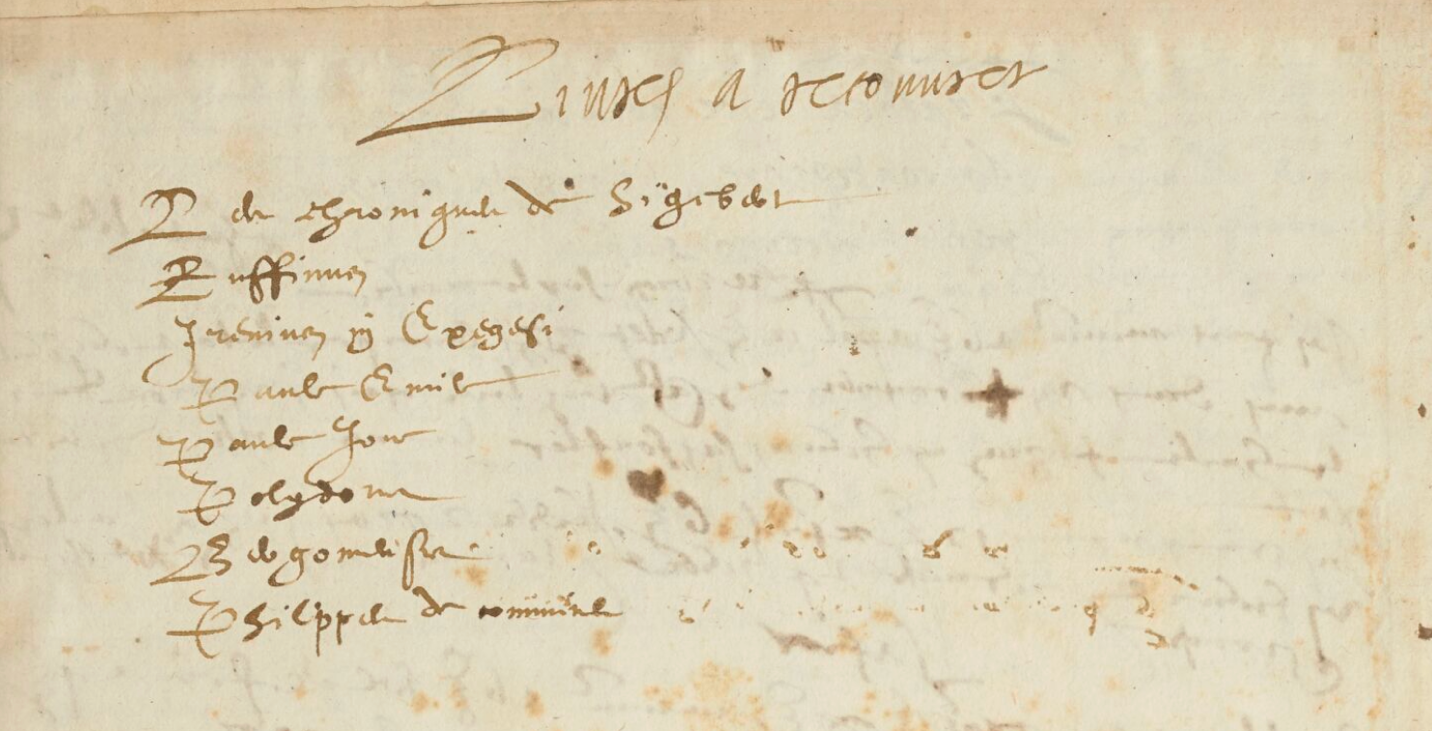 Liures a recouurer
Les chronique de Sigebert
Ruffinus
Ireninus in Exegesi
Paule Emile
Paule Joue
Polydore
Bergomense
Philippe de commine